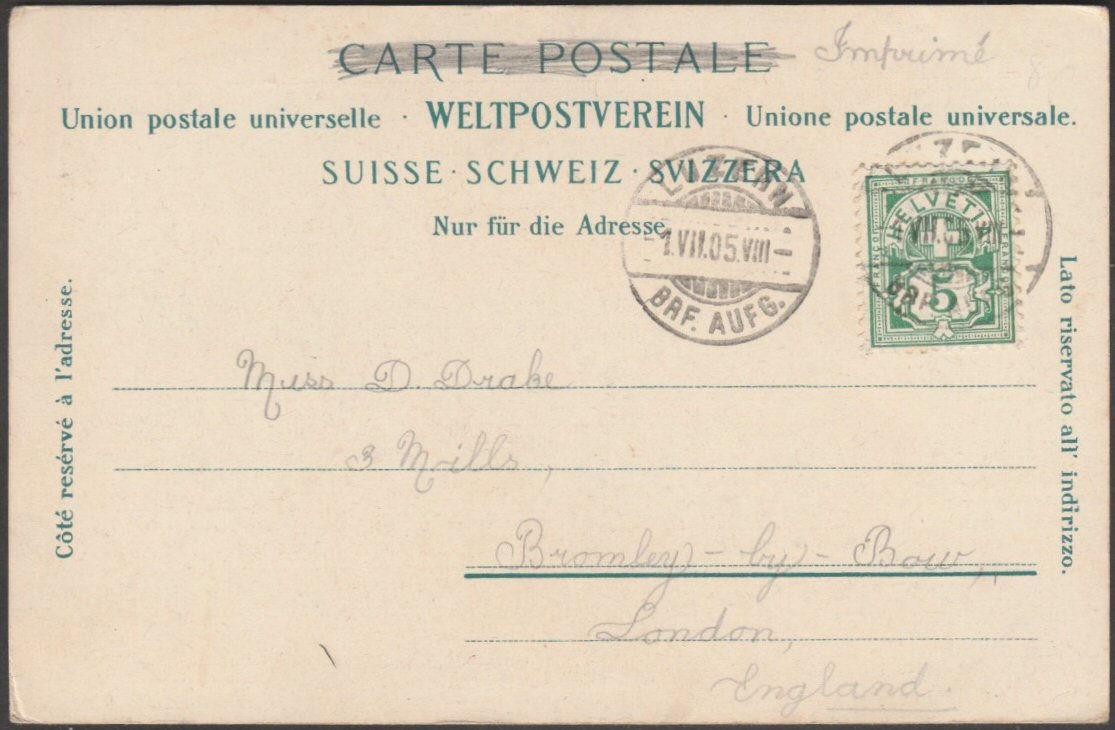 CARTE POSTALE Imprimé
Union postale universelle · WELTPOSTVEREIN · Unione postale universale.
SUISSE · SCHWEIZ · SVIZZERA
Nur für die Adresse
LUZERN
1.VII.05.VIII
BRF. AUFG.
FRANCO
HELVETIA
VII.05
5
BRF.
Côté resérvé à l'adresse.
Lato riservato all' indirizzo.
Miss D. Drake
3 Mills,
Bromley-by-Bow,
London,
England.